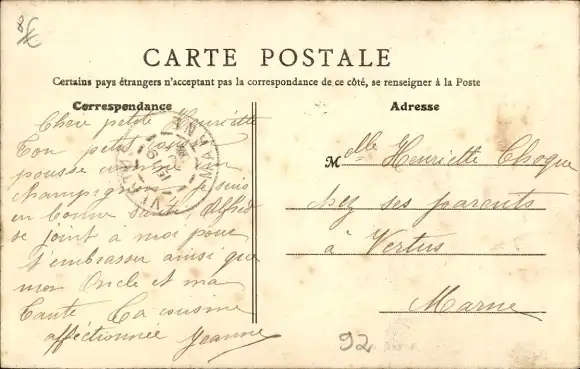 CARTE POSTALE
Certains pays étrangers n'acceptant pas la correspondance de ce côté, se renseigner à la Poste
Correspondance
Chère petite Henriette
Ton petit cousin
pousse comme un
champignon je suis
en bonne santé, Alfred
se joint à moi pour
t'embrasser ainsi que
mon Oncle et ma
Tante Ta cousine
afféctionnée Jeanne
Adresse
Mdlle Henriette Choque
chez ses parents
à Vertus
Marne
MARNE
92